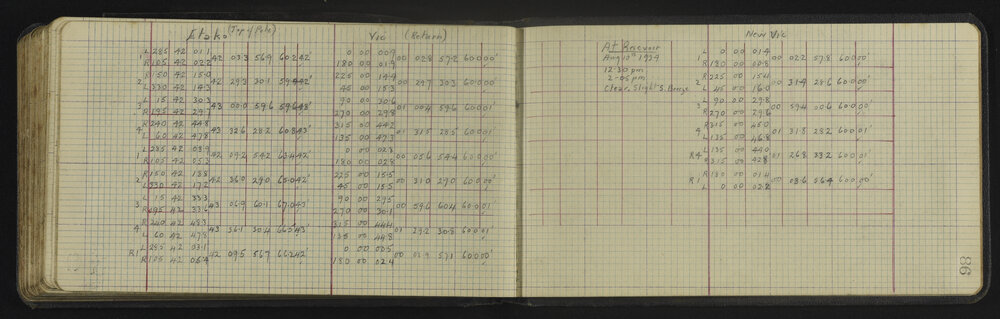 (Top of Pole)
Vic (Return)
L 285 42 01.1
R 105 42 02.2
42 03.3 56.9 60.2 42'
0 00 00.9
180 00 01.9
00 02.8 57.2 60.0 00'
R 150 42 15.0
L 330 42 14.3
42 29.3 30.1 59.4 42'
225 00 14.4
45 00 15.3
00 29.7 30.3 60.0 00'
L 15 42 30.3
R 195 42 29.7
43 00.0 59.6 59.6 43'
90 00 30.6
270 00 29.8
01 00.4 59.6 60.0 01'
R 240 42 44.8
L 60 42 47.8
43 32.6 28.2 60.8 43'
315 00 44.2
135 00 47.3
01 31.5 28.5 60.0 01'
L 285 42 03.9
R 105 42 05.3
42 09.2 54.2 63.4 42'
0 00 02.8
180 00 02.8
00 05.6 54.4 60.0 00'
R 150 42 18.8
L 330 42 17.2
42 36.0 29.0 65.0 42'
225 00 15.5
45 00 15.5
00 31.0 29.0 60.0 00'
L 15 42 33.3
R 195 42 33.6
43 06.9 60.1 67.0 43'
90 00 29.5
270 00 30.1
00 59.6 60.4 60.0 01'
R 240 42 48.3
L 60 42 47.8
43 36.1 30.4 66.5 43'
315 00 44.4
135 00 44.8
01 29.2 30.8 60.0 01'
L 285 42 03.1
R 105 42 06.4
R1 42 09.5 56.7 66.2 42'
0 00 00.5
180 00 02.4
00 02.9 57.1 60.0 00'
At Bream
Aug 10th 1934
12.30 pm
2-45 pm
Clear. Slight S. Breeze
New Vic
1 L 0 00 01.4
R 180 00 00.8
00 02.2 57.8 60.0 00'
2 R 225 00 15.4
L 45 00 16.0
00 31.4 28.6 60.0 00'
3 L 90 00 29.8
R 270 00 29.6
00 59.4 00.6 60.0 00'
4 R 315 00 45.0
L 135 00 46.8
01 31.8 28.2 60.0 01'
R4 L 135 00 44.0
R 315 00 42.8
01 26.8 33.2 60.0 01'
R1 R 180 00 01.4
L 0 00 02.2
00 03.6 56.4 60.0 00'
98